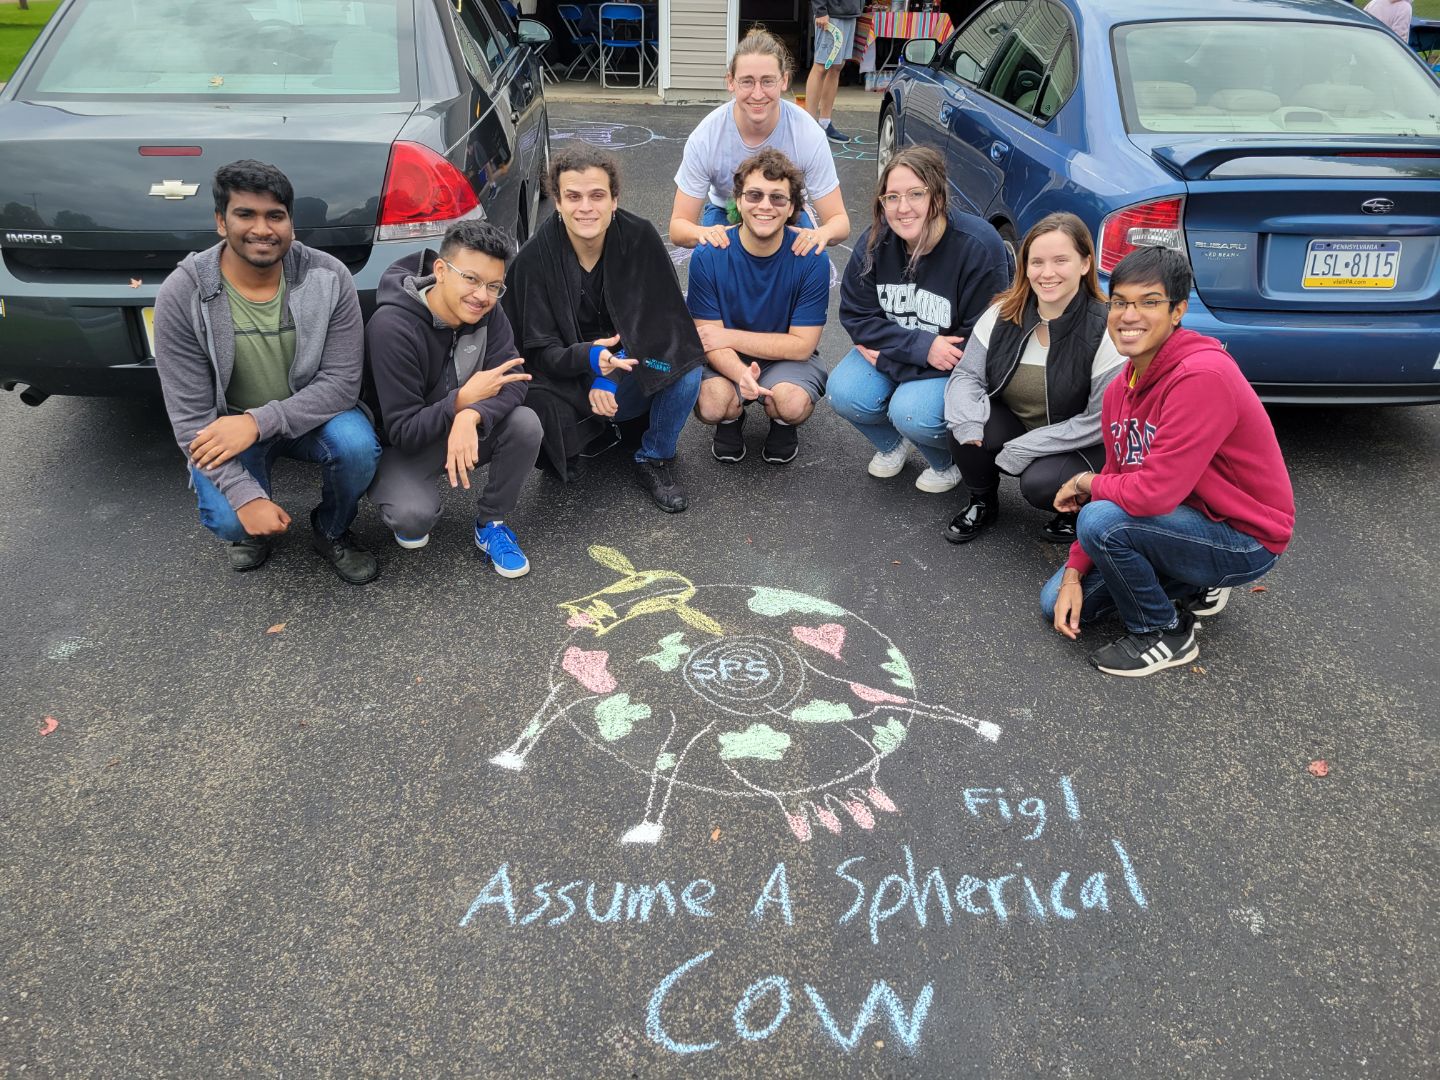 IMPALA
SUBARU
PENNSYLVANIA
LSL•8115
visitPA.com
LYCOMING
GAP
SPS
Fig 1
Assume A Spherical
Cow